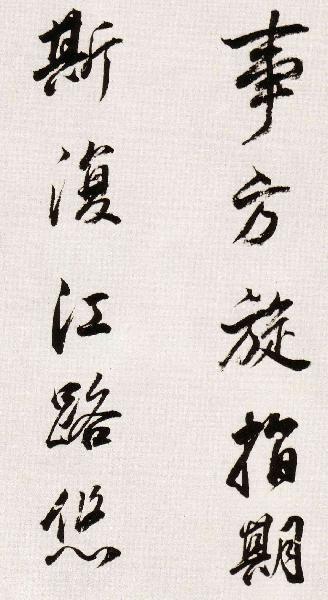 事方旋指期
斯復江路悠